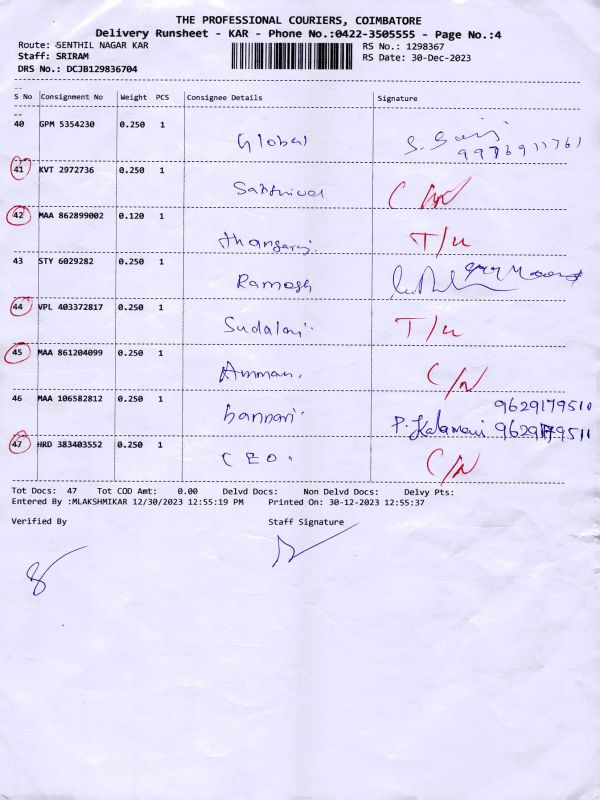 THE PROFESSIONAL COURIERS, COIMBATORE
Delivery Runsheet - KAR - Phone No.:0422-3505555 - Page No.:4
Route: SENTHIL NAGAR KAR RS No.: 1298367
Staff: SRIRAM RS Date: 30-Dec-2023
DRS No.: DCJB129836704
S No Consignment No Weight PCS Consignee Details Signature
40 GPM 5354230 0.250 1 Global
41 KVT 2972736 0.250 1 Sakthivel C/N
42 MAA 862899002 0.120 1 thangaraj. T/U
43 STY 6029282 0.250 1 Ramesh
44 VPL 403372817 0.250 1 Sudalai. T/U
45 MAA 861204099 0.250 1 Amman. C/N
9629179510
46 MAA 106582812 0.250 1 bannari. P. Kalamani
47 HRD 383403552 0.250 1 CEO. C/N
Tot Docs: 47 Tot COD Amt: 0.00 Delvd Docs: Non Delvd Docs: Delvy Pts:
Entered By :MLAKSHMIKAR 12/30/2023 12:55:19 PM Printed On: 30-12-2023 12:55:37
Verified By Staff Signature